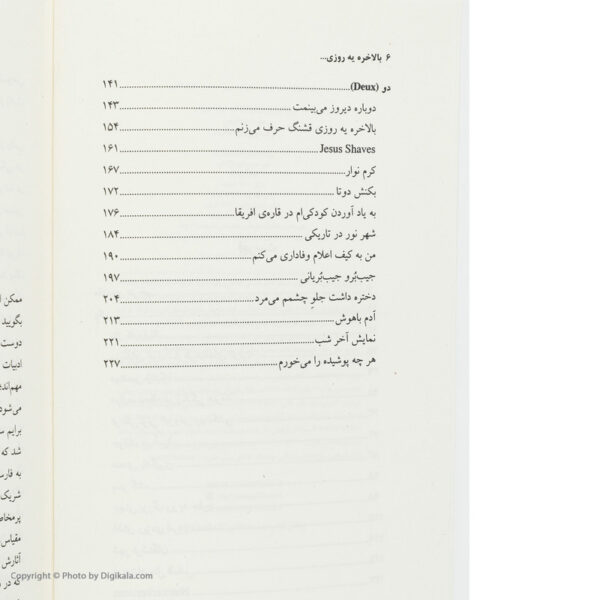 ۶ بالاخره یه روزی...
دو (Deux)........ ۱۴۱
دوباره دیروز می‌بینمت........ ۱۴۳
بالاخره یه روزی قشنگ حرف می‌زنم........ ۱۵۴
Jesus Shaves........ ۱۶۱
کرم نوار........ ۱۶۷
بکنش دوتا........ ۱۷۲
به یاد آوردن کودکی‌ام در قاره‌ی افریقا........ ۱۷۶
شهر نور در تاریکی........ ۱۸۴
من به کیف اعلام وفاداری می‌کنم........ ۱۹۰
جیب‌بُرو جیب‌بُریانی........ ۱۹۷
دختره داشت جلوِ چشمم می‌مرد........ ۲۰۴
آدم باهوش........ ۲۱۳
نمایش آخر شب........ ۲۲۱
هر چه پوشیده را می‌خورم........ ۲۲۷
ممکن
بگویید
دوست
ادبیات
مهم‌اند؛
می‌شود
برایم
شد که
به فارس
شریک
پرمخا
مقیاس
آثارش
که در
Copyright © Photo by Digikala.com